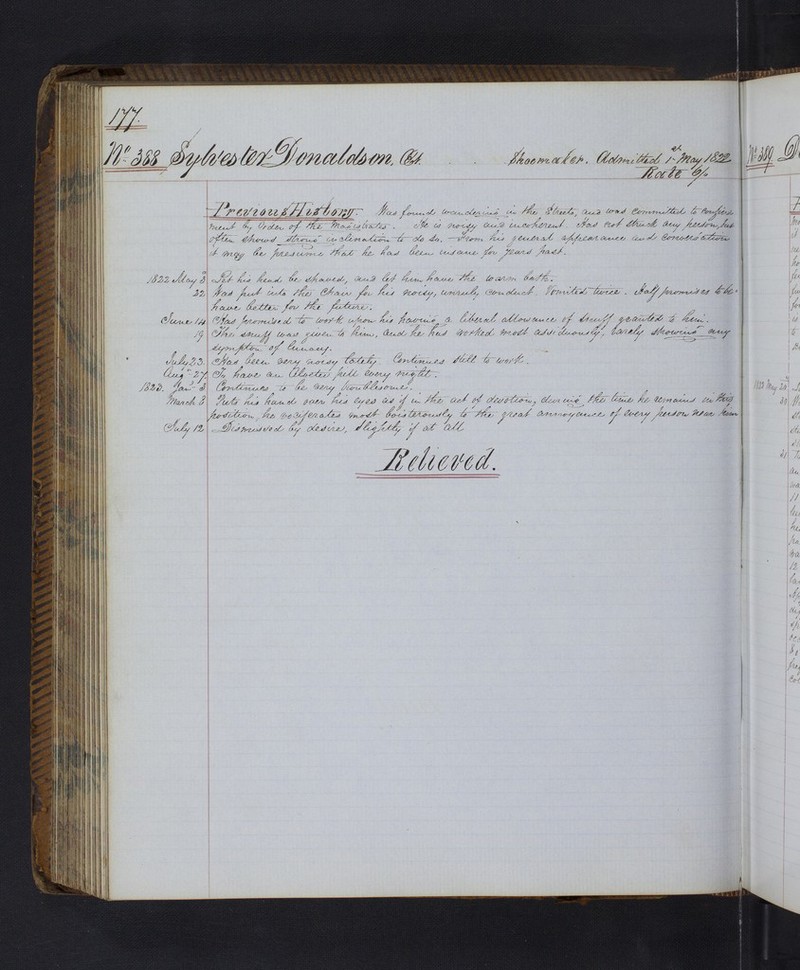 177.
No. 388 Sylvester Donaldson, Shoemaker. Admitted 1st May 1822
Rate 6/.
Previous History. Was found wandering in the Streets, and was committed to confine
ment by Order of the Magistrates. He is noisy and incoherent. Has not struck any person, but
often shows strong inclination to do so. From his general appearance and conversation
it may be presumed that he has been insane for years past.
1822 May 3 Let his head be shaved, and let him have the warm bath.
22 Was put into the Chair for his noisy, unruly conduct. Vomited twice. Half promises to be-
have better for the future.
June 14 Has promised to work upon his having a liberal allowance of snuff granted to him.
19 The snuff was given to him, and he has worked most assiduously, rarely showing any
symptom of lunacy.
July 23. Has been very noisy lately. Continues still to work.
Augt 27 To have an Aloetic pill every night.
1823. Jany 3 Continues to be very troublesome.
March 3 Puts his hand over his eyes as if in the act of devotion, during the time he remains in this
position, he vociferates most boisterously to the great annoyance of every person near him
July 12 Dismissed by desire, slightly if at all
Relieved.
No. 389
1822 May